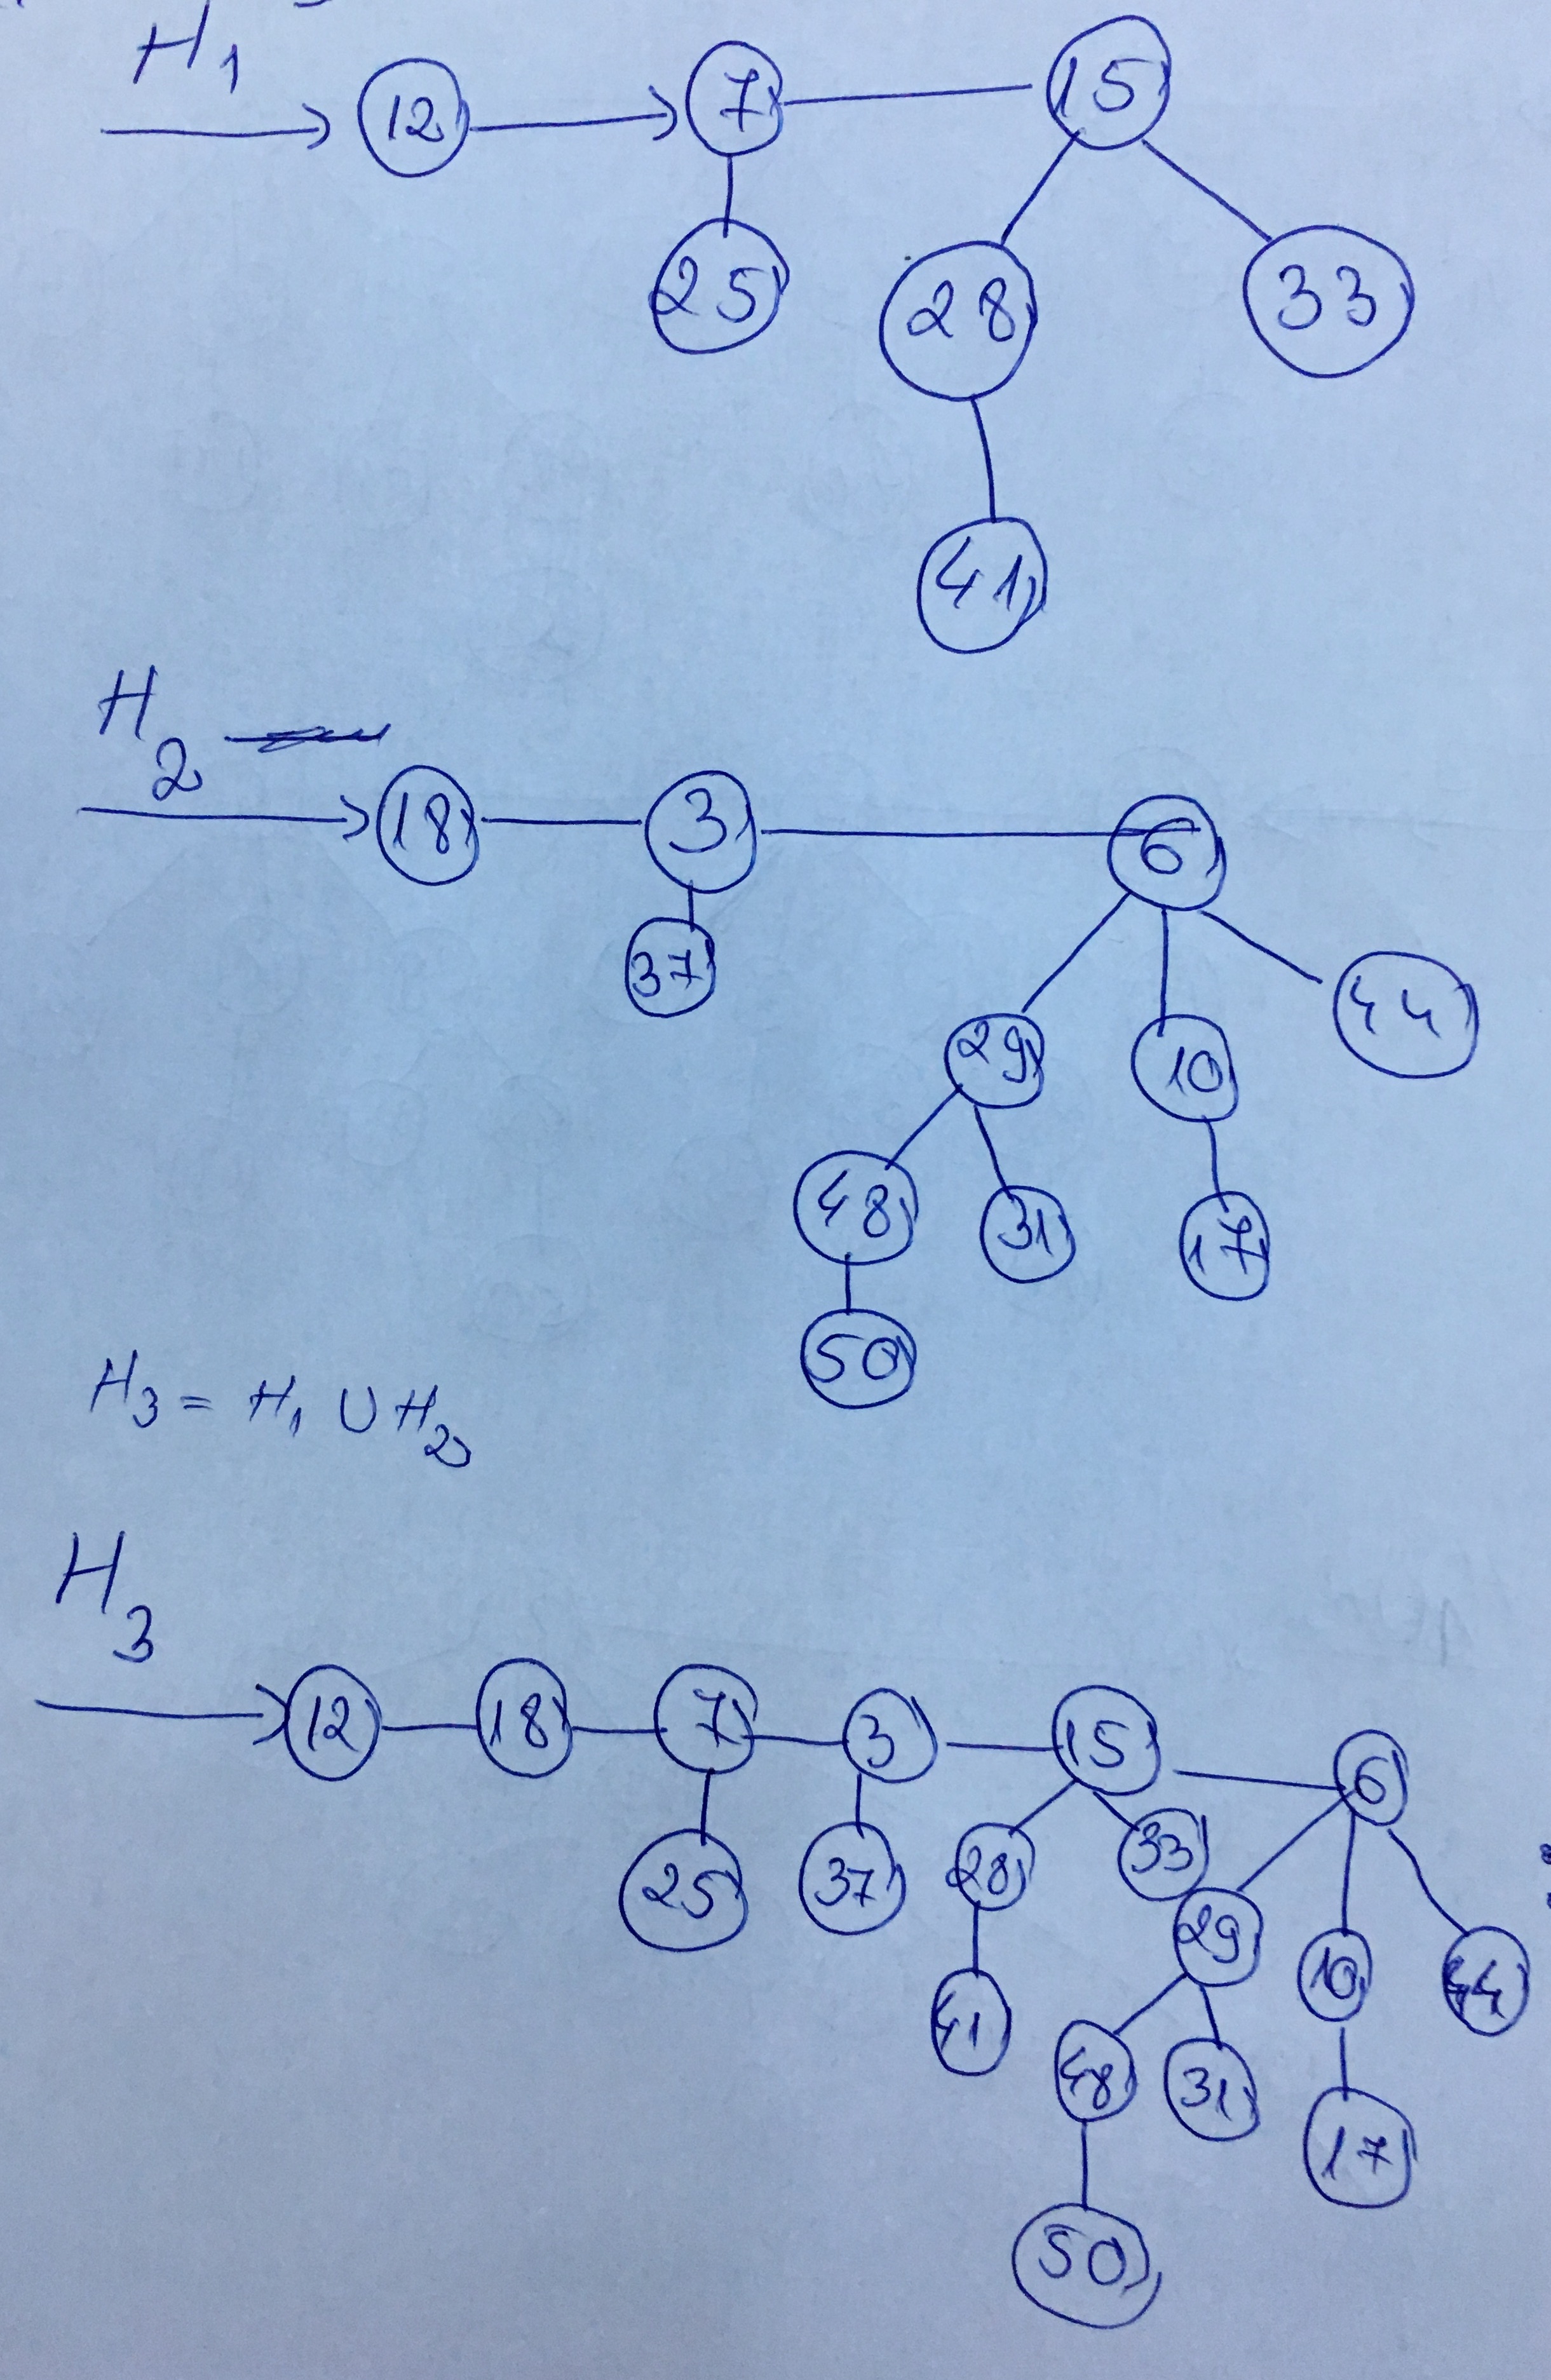 H1
12 7 15
25 28 33
41
H2
18 3 6
37 29 10 44
48 31 17
50
H3 = H1 ∪ H2
H3
12 18 7 3 15 6
25 37 28 33
29 10 44
41 48 31 17
50